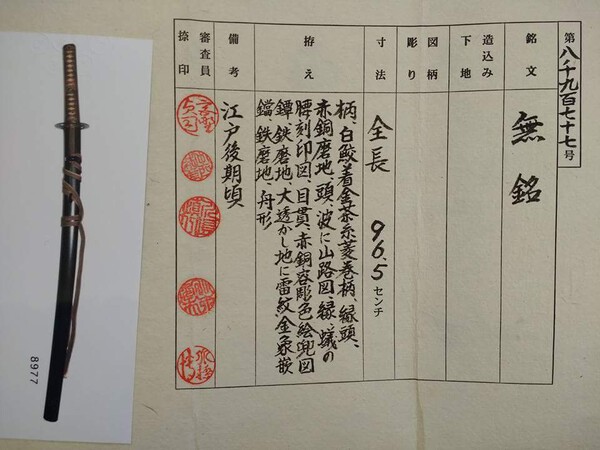 第八千九百七十七号
銘文
無銘
造込み
下地
図柄
彫り
寸法
全長 96.5センチ
拵え
柄、白鮫着金茶糸菱巻柄、縁頭、
赤銅磨地、頭、波に山路図、縁、蟻の
腰刻印図、目貫、赤銅容彫色絵兜図
鐔、鉄磨地、大透かし地に雷紋金象嵌
鐺、鉄磨地、舟形
備考
江戸後期頃
審査員
捺印
8977